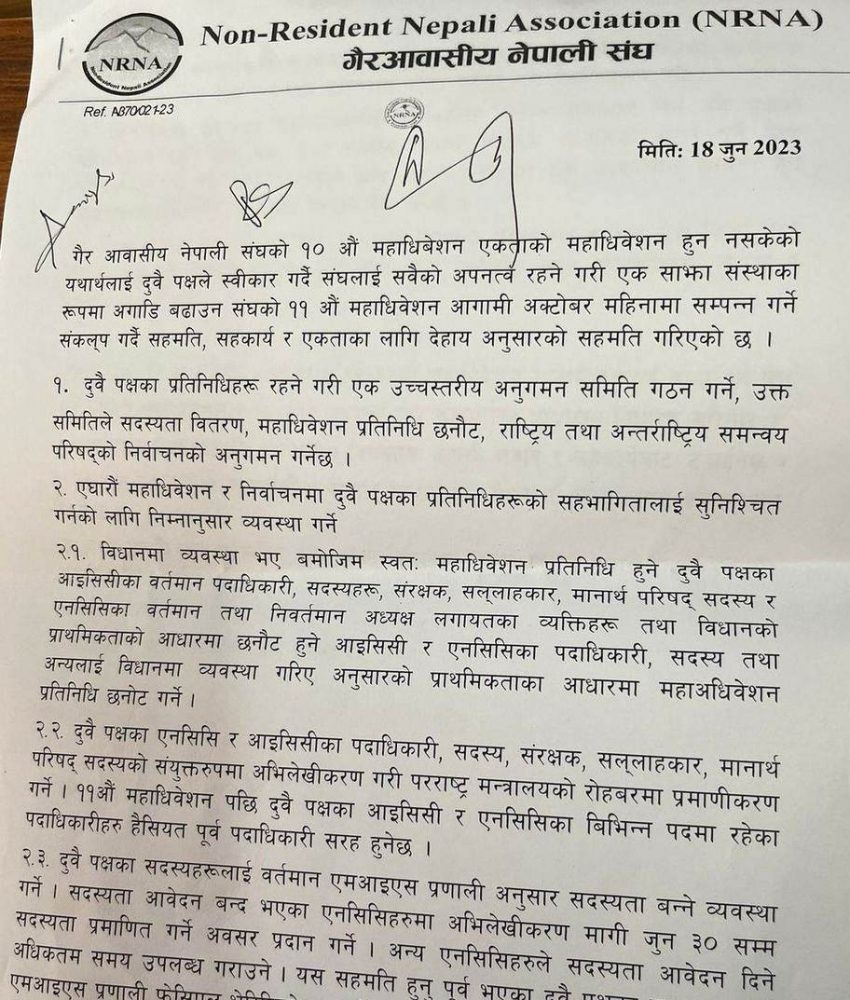 Non-Resident Nepali Association (NRNA)
गैरआवासीय नेपाली संघ
NRNA
Non-Resident Nepali Association
NRNA
मितिः 18 जुन 2023
गैर आवासीय नेपाली संघको १० औं महाधिबेशन एकताको महाधिवेशन हुन नसकेको
यथार्थलाई दुवै पक्षले स्वीकार गर्दै संघलाई सवैको अपनत्व रहने गरी एक साझा संस्थाका
रूपमा अगाडि बढाउन संघको ११ औं महाधिवेशन आगामी अक्टोबर महिनामा सम्पन्न गर्ने
संकल्प गर्दै सहमति, सहकार्य र एकताका लागि देहाय अनुसारको सहमति गरिएको छ ।
१. दुवै पक्षका प्रतिनिधिहरू रहने गरी एक उच्चस्तरीय अनुगमन समिति गठन गर्ने, उक्त
समितिले सदस्यता वितरण, महाधिवेशन प्रतिनिधि छनौट, राष्ट्रिय तथा अन्तर्राष्ट्रिय समन्वय
परिषद्को निर्वाचनको अनुगमन गर्नेछ ।
२. एघारौं महाधिवेशन र निर्वाचनमा दुवै पक्षका प्रतिनिधिहरूको सहभागितालाई सुनिश्चित
गर्नको लागि निम्नानुसार व्यवस्था गर्ने
२.१. विधानमा व्यवस्था भए बमोजिम स्वतः महाधिवेशन प्रतिनिधि हुने दुवै पक्षका
आइसिसीका वर्तमान पदाधिकारी, सदस्यहरू, संरक्षक, सल्लाहकार, मानार्थ परिषद् सदस्य र
एनसिसिका वर्तमान तथा निवर्तमान अध्यक्ष लगायतका व्यक्तिहरू तथा विधानको
प्राथमिकताको आधारमा छनौट हुने आइसिसी र एनसिसिका पदाधिकारी, सदस्य तथा
अन्यलाई विधानमा व्यवस्था गरिए अनुसारको प्राथमिकताका आधारमा महाअधिवेशन
प्रतिनिधि छनोट गर्ने ।
२.२. दुवै पक्षका एनसिसि र आइसिसीका पदाधिकारी, सदस्य, संरक्षक, सल्लाहकार, मानार्थ
परिषद् सदस्यको संयुक्तरुपमा अभिलेखीकरण गरी परराष्ट्र मन्त्रालयको रोहबरमा प्रमाणीकरण
गर्ने । ११औं महाधिवेशन पछि दुवै पक्षका आइसिसी र एनसिसिका बिभिन्न पदमा रहेका
पदाधिकारीहरु हैसियत पूर्व पदाधिकारी सरह हुनेछ ।
२.३. दुवै पक्षका सदस्यहरूलाई वर्तमान एमआइएस प्रणाली अनुसार सदस्यता बन्ने व्यवस्था
गर्ने । सदस्यता आवेदन बन्द भएका एनसिसिहरुमा अभिलेखीकरण मागी जुन ३० सम्म
सदस्यता प्रमाणित गर्ने अवसर प्रदान गर्ने । अन्य एनसिसिहरुले सदस्यता आवेदन दिने
अधिकतम समय उपलब्ध गराउने । यस सहमति हुनु पूर्व भएका दुवै
एमआइएस प्रणाली